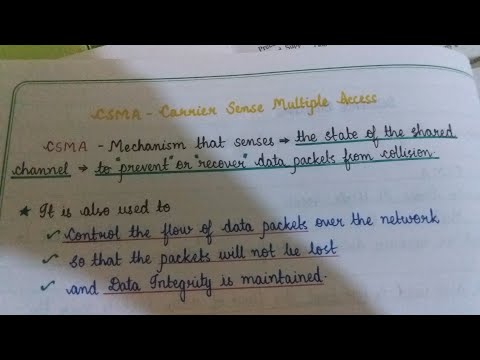 CSMA - Carrier Sense Multiple Access
CSMA - Mechanism that senses → the state of the shared
channel → to "prevent" or "recover" data packets from collision.
★ It is also used to
✓ Control the flow of data packets over the network,
✓ so that the packets will not be lost
✓ and Data Integrity is maintained.